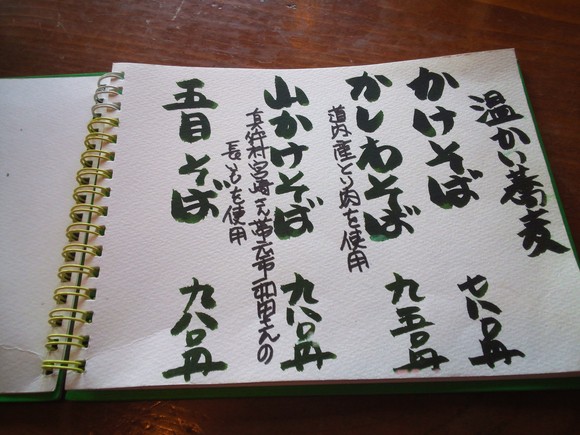 温かい蕎麦
かけそば 七八〇円
かしわそば 九五〇円
道内産とり肉を使用
山かけそば 九八〇円
真狩村宮崎さん帯広市和田さんの
長いもを使用
五目そば 九八〇円